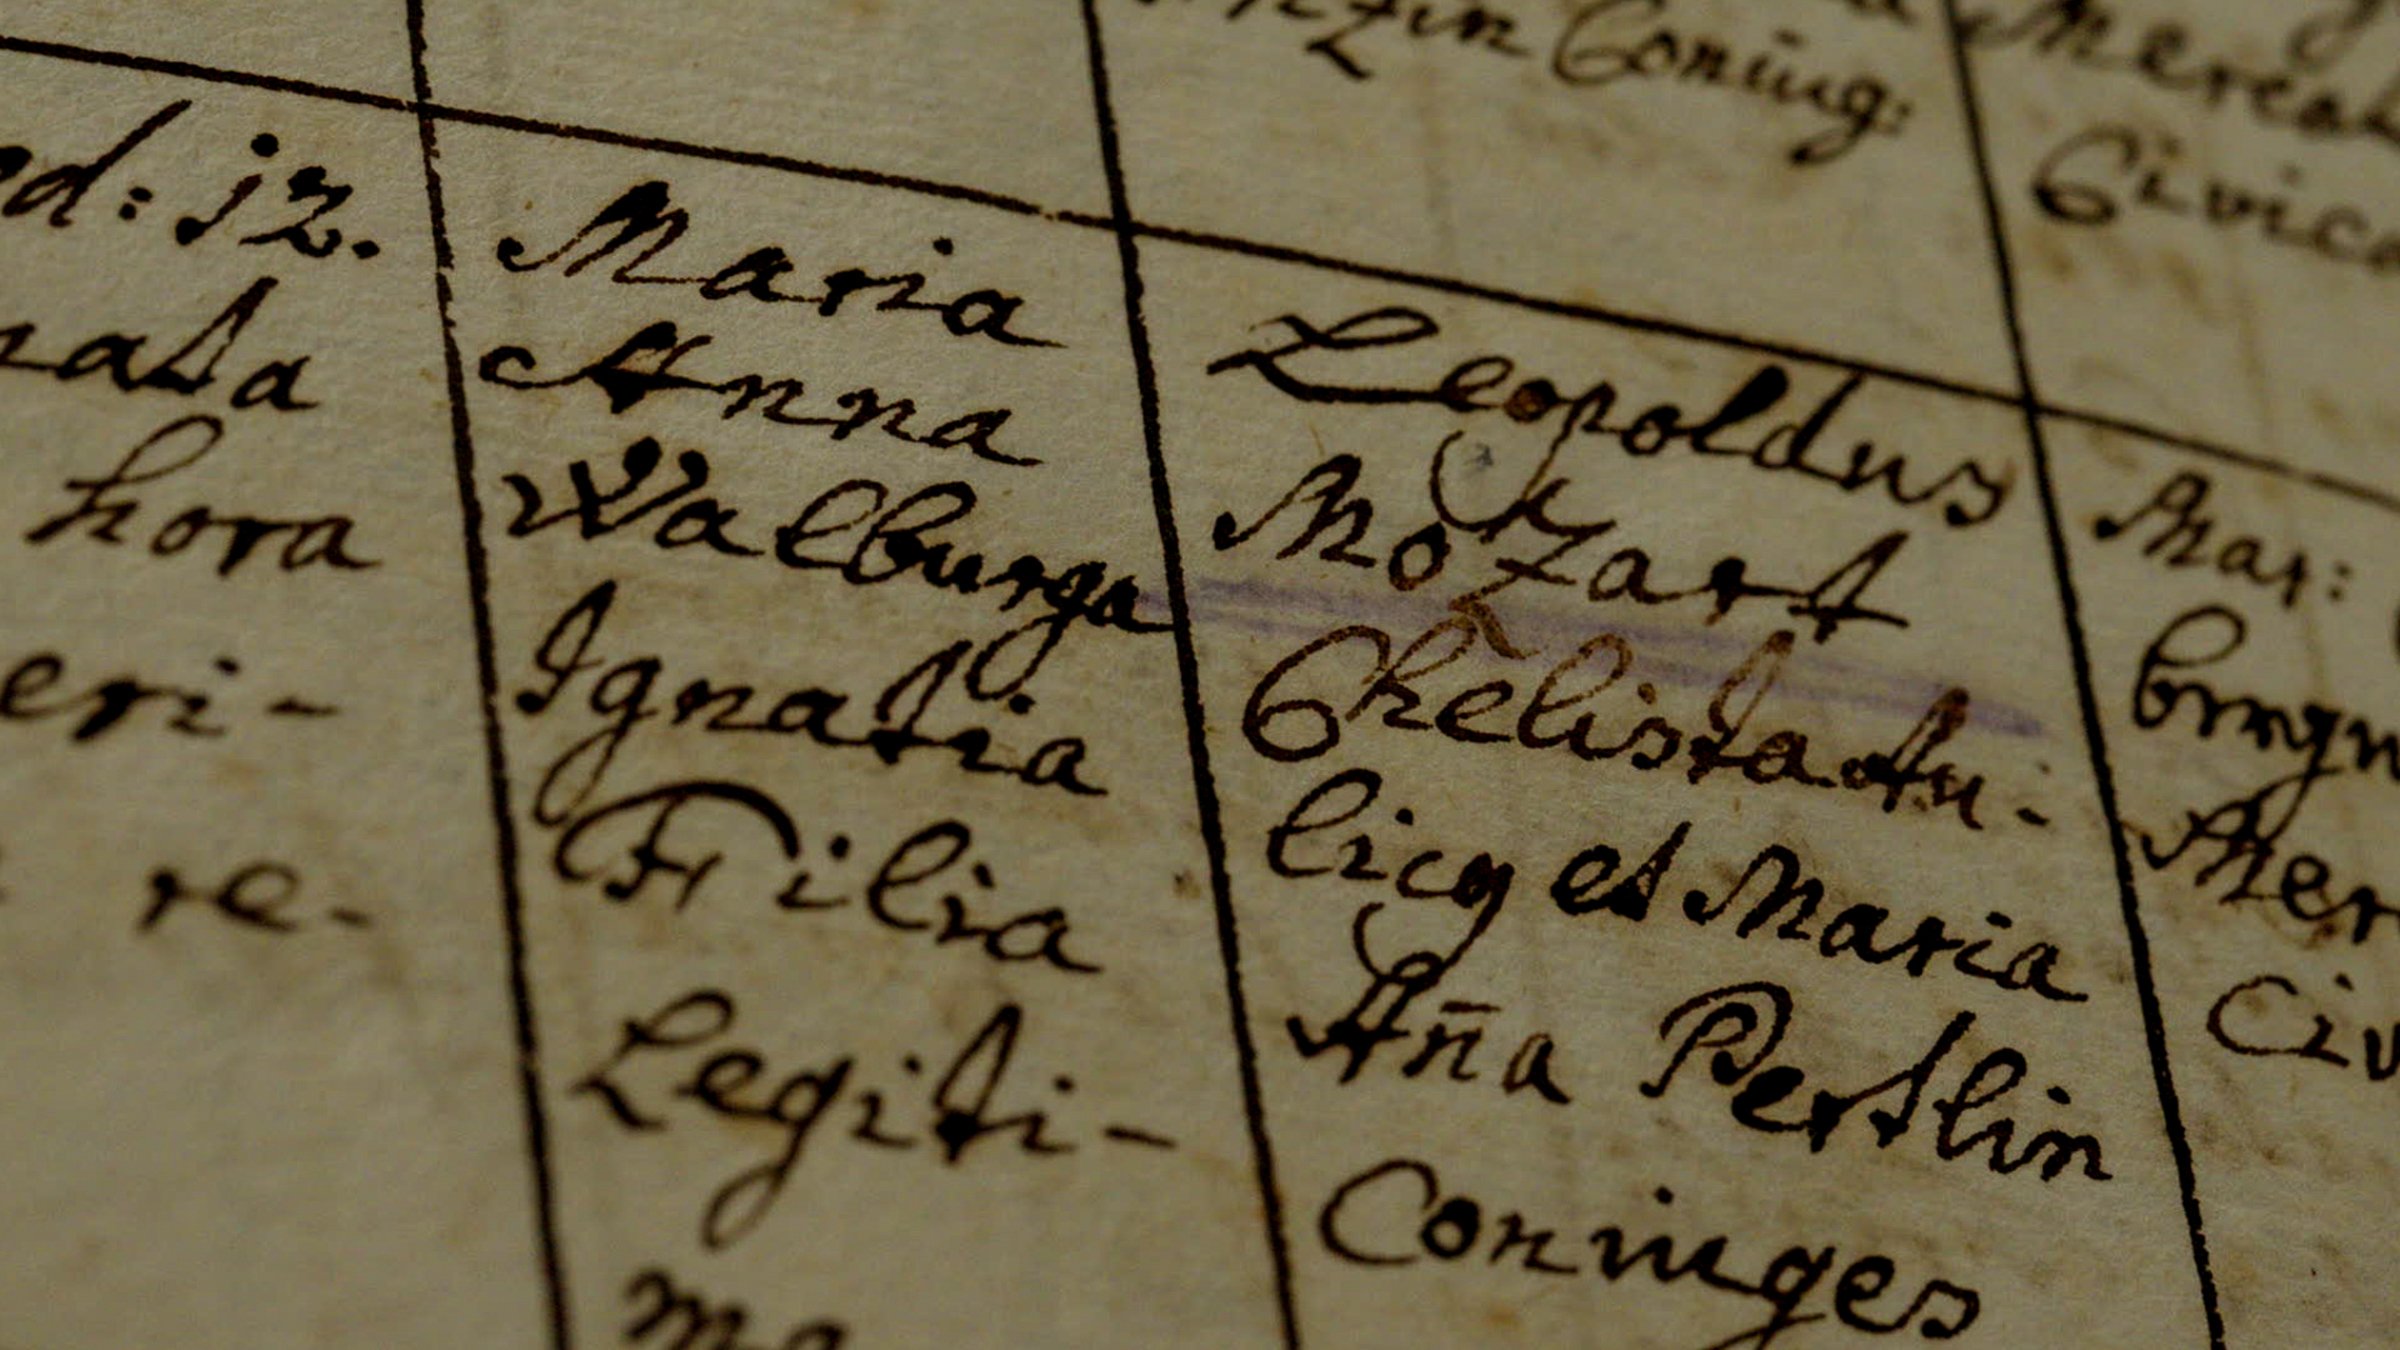 Coniug:
Civica
ed: 12.
nata
hora
eri-
re-
Maria
Anna
Walburga
Ignatia
Filia
Legiti-
ma
Leopoldus
Mozart
Chelista Au-
licq et Maria
Aña Pertlin
Coniuges
Mar:
burgn
Mer
Civ